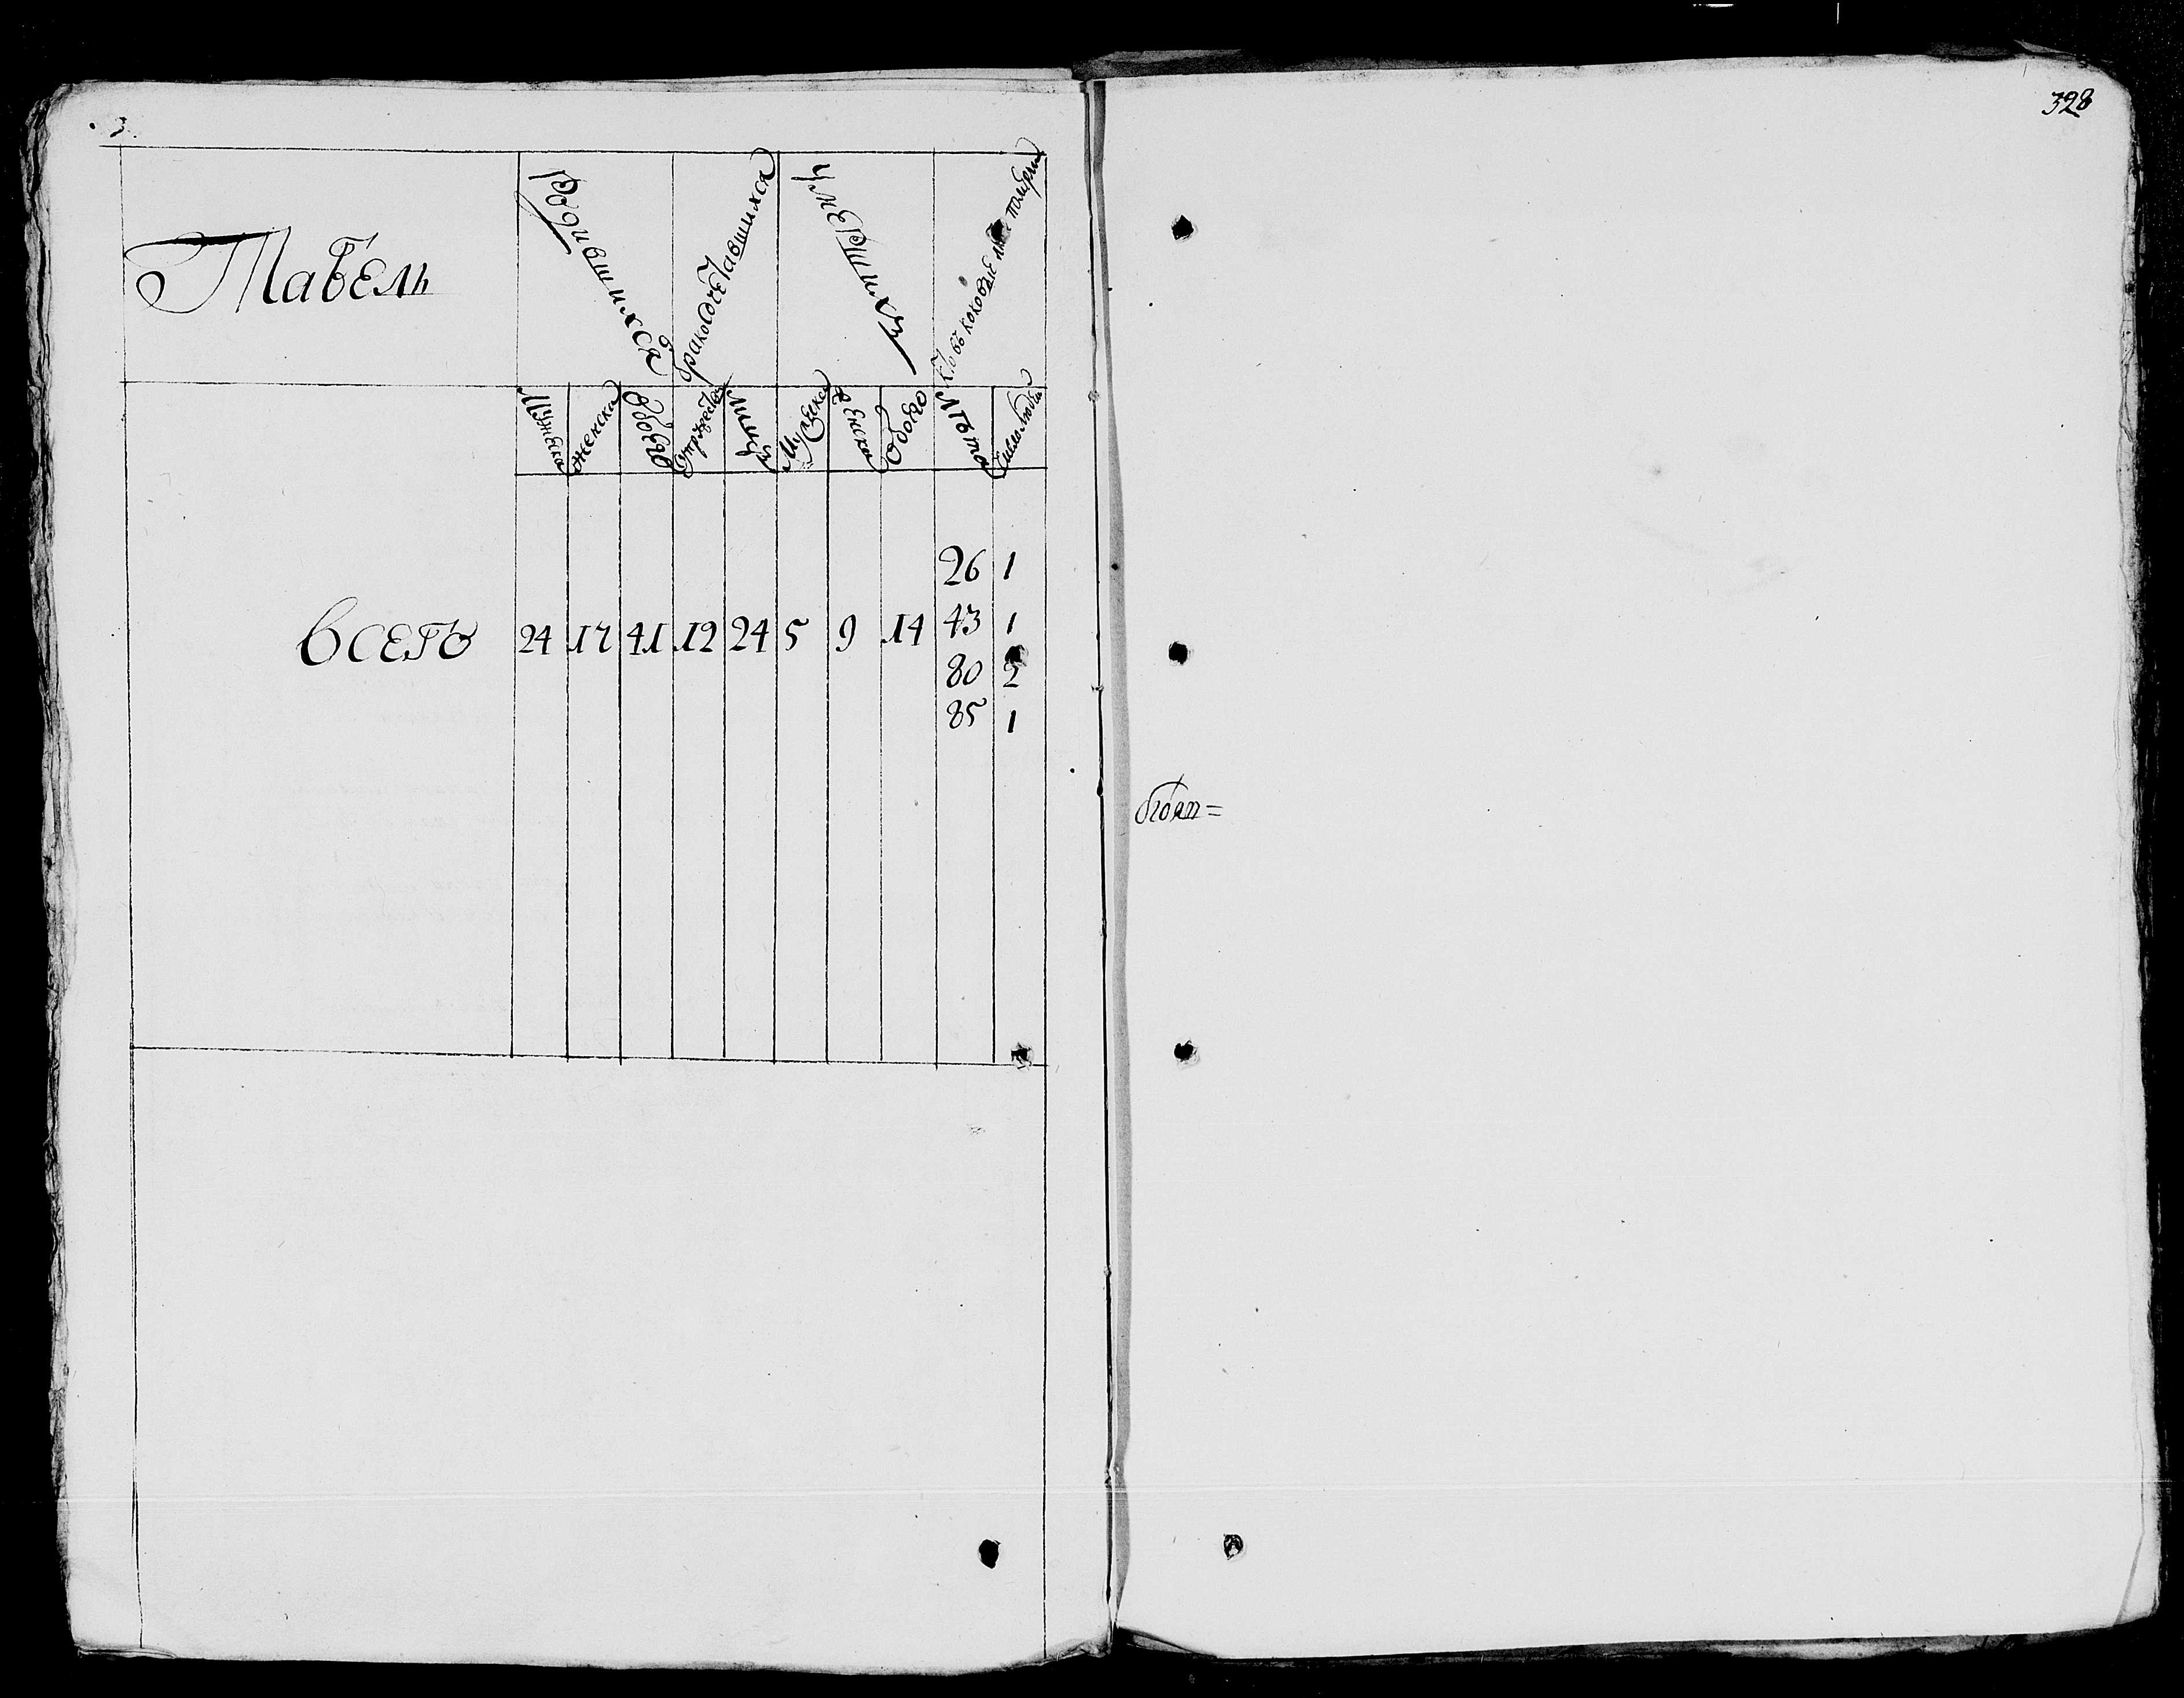 3.
328
Табель
Родившихся
Бракосочетавшихся
Умершихъ
Кто въ коковые лѣта померли
Мужеска
женска
Обоего
Супружества
Лицъ
Мужеска
Женска
Обоего
Лѣта
Число людей
26 1
всего 24 17 41 12 24 5 9 14 43 1
80 2
85 1